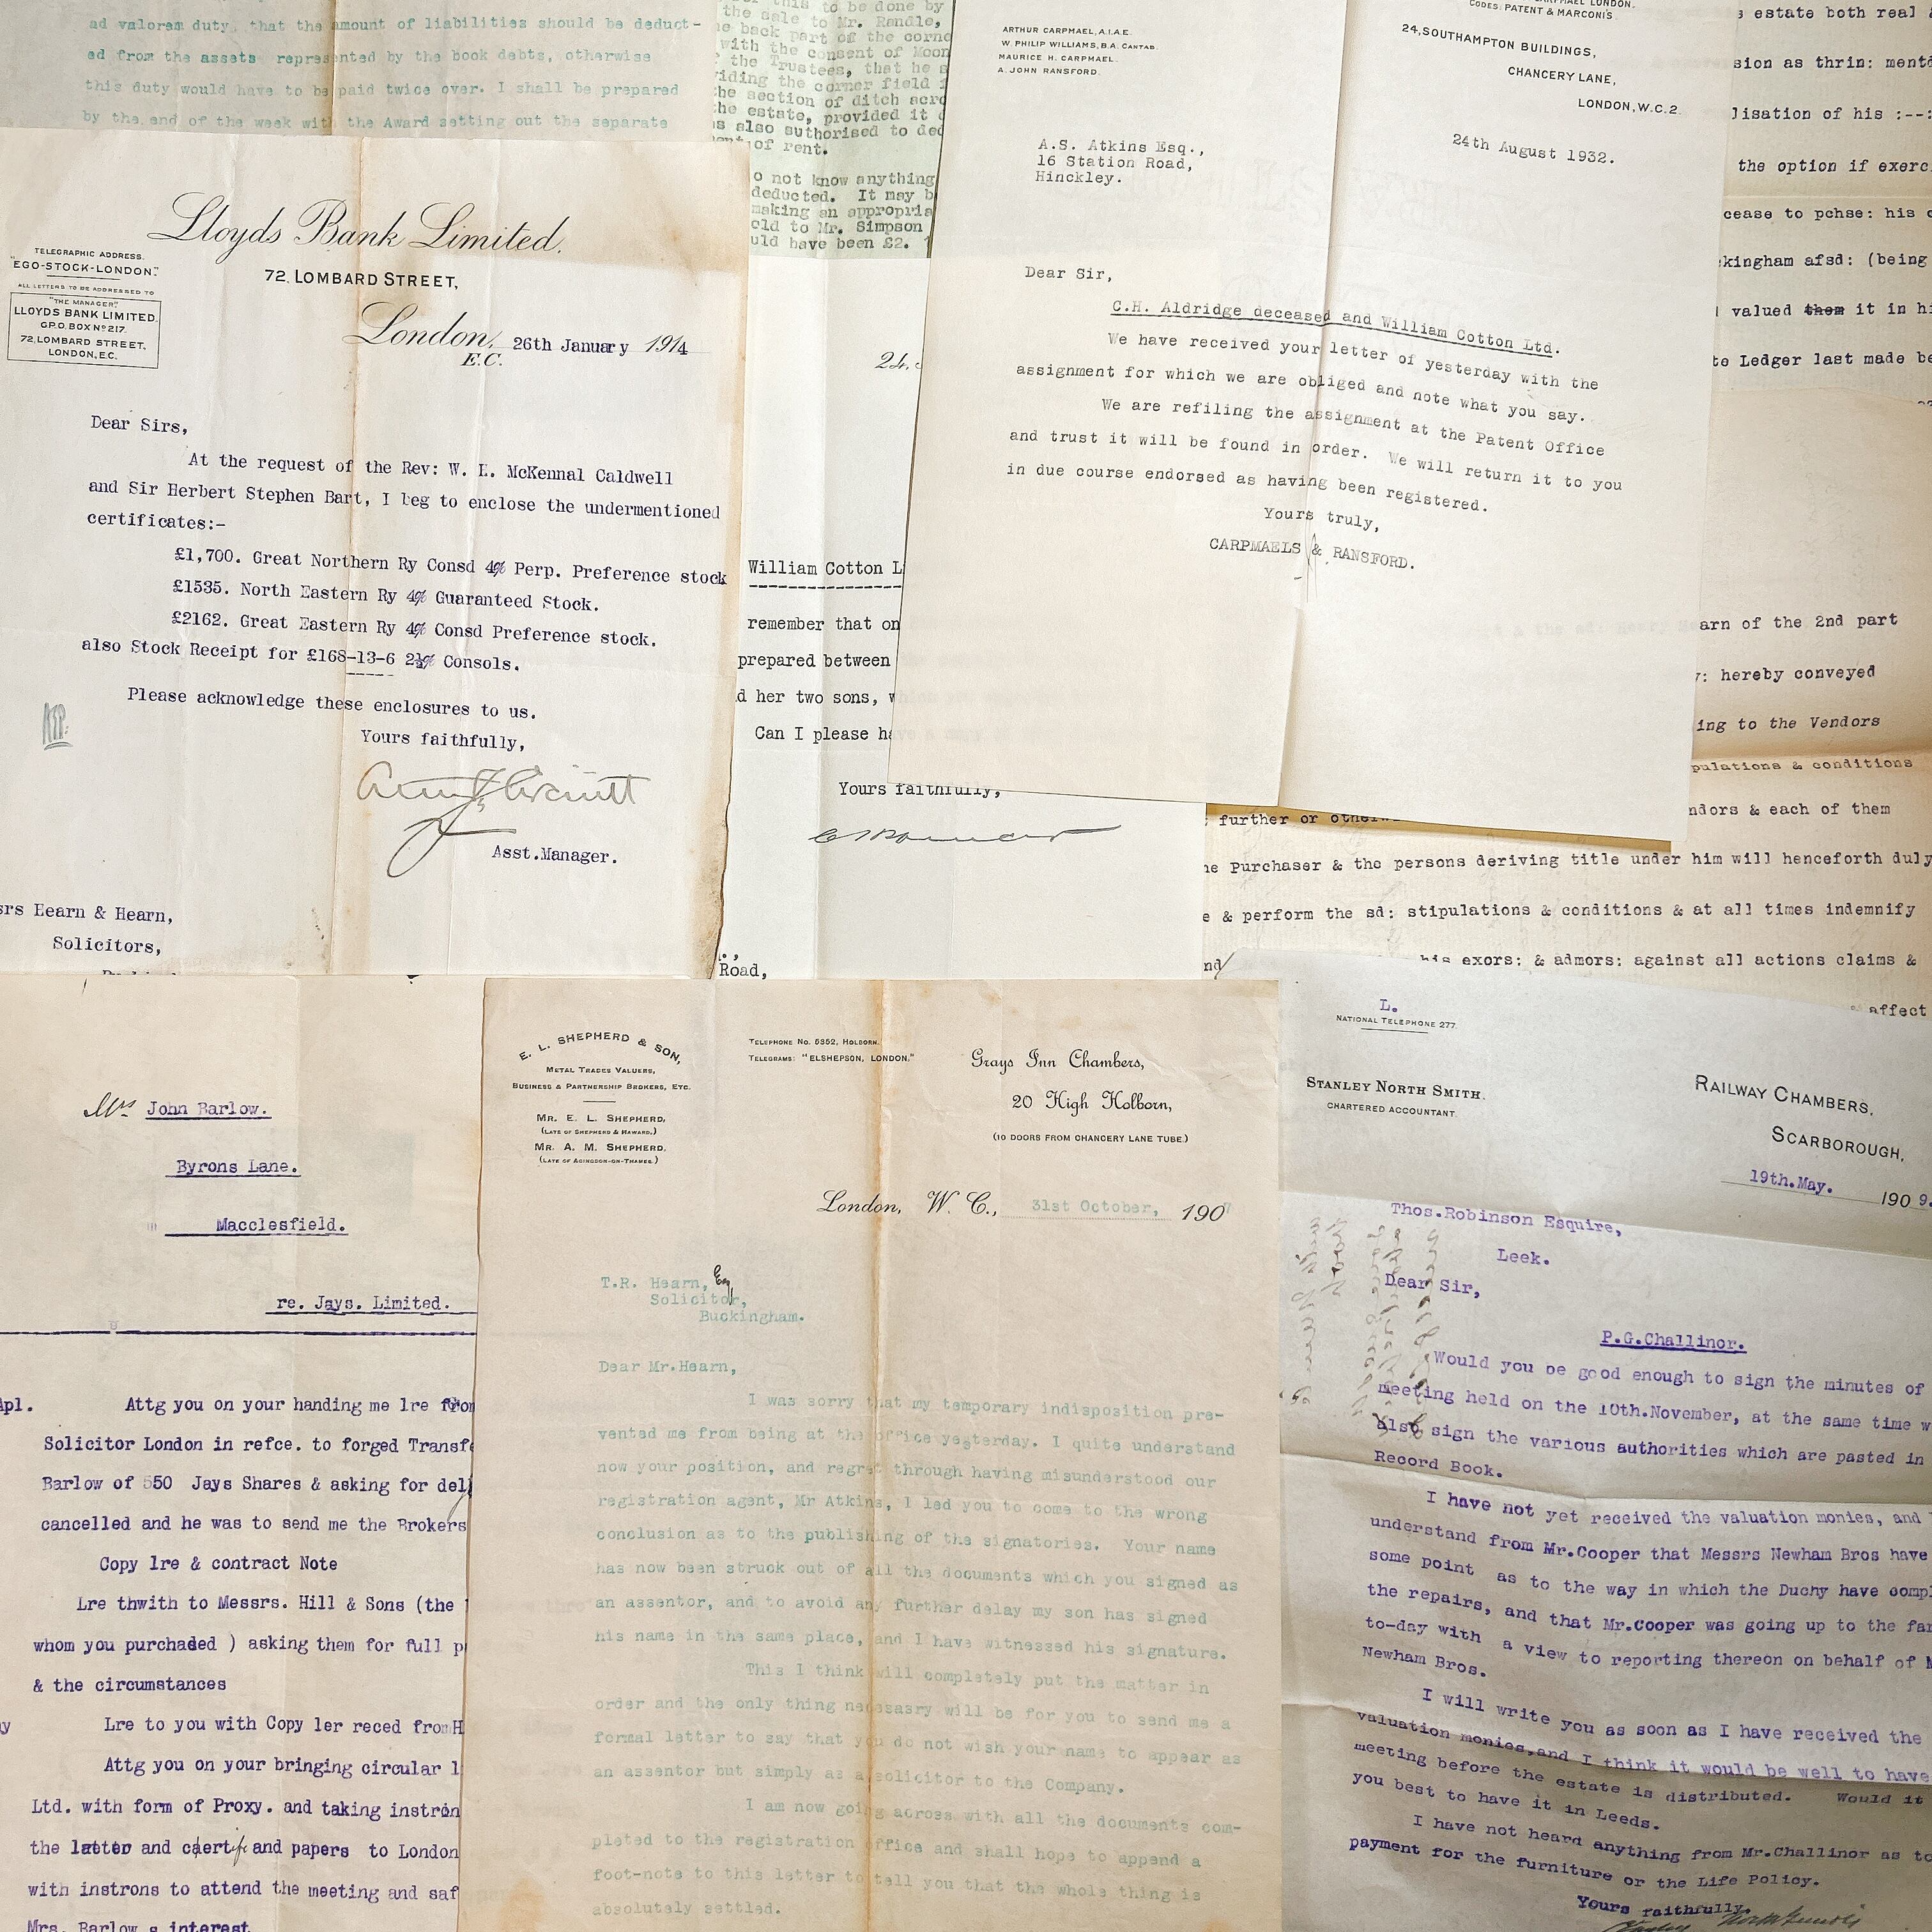 ad valorem duty, that the amount of liabilities should be deduct-
ed from the assets represented by the book debts, otherwise
this duty would have to be paid twice over. I shall be prepared
by the end of the week with the Award setting out the separate
this to be done by
the sale to Mr. Randle,
back part of the corne
with the consent of Moon
the Trustees, that he a
viding the corner field f
the section of ditch acro
the estate, provided it
is also authorised to ded
of rent.
o not know anything
deducted. It may b
making an appropria
old to Mr. Simpson
uld have been £2.
Lloyds Bank Limited.
TELEGRAPHIC ADDRESS.
"EGO-STOCK-LONDON."
ALL LETTERS TO BE ADDRESSED TO
"THE MANAGER",
LLOYDS BANK LIMITED.
G.P.O. BOX Nº 217.
72, LOMBARD STREET,
LONDON, E.C.
72, LOMBARD STREET,
London, 26th January 1914
E.C.
Dear Sirs,
At the request of the Rev: W. H. McKennal Caldwell
and Sir Herbert Stephen Bart, I beg to enclose the undermentioned
certificates:-
£1,700. Great Northern Ry Consd 4% Perp. Preference stock
£1535. North Eastern Ry 4% Guaranteed Stock.
£2162. Great Eastern Ry 4% Consd Preference stock.
also Stock Receipt for £168-13-6 2½% Consols.
Please acknowledge these enclosures to us.
Yours faithfully,
Asst.Manager.
srs Hearn & Hearn,
Solicitors,
William Cotton L
remember that on
prepared between
d her two sons, w
Can I please have a
Yours faithfully,
Road,
ARTHUR CARPMAEL, A.I.A.E.
W. PHILIP WILLIAMS, B.A. CANTAB.
MAURICE H. CARPMAEL.
A. JOHN RANSFORD.
CARPMAEL LONDON.
CODES: PATENT & MARCONI'S
24, SOUTHAMPTON BUILDINGS,
CHANCERY LANE,
LONDON, W.C.2.
24th August 1932.
A.S. Atkins Esq.,
16 Station Road,
Hinckley.
Dear Sir,
C.H. Aldridge deceased and William Cotton Ltd.
We have received your letter of yesterday with the
assignment for which we are obliged and note what you say.
We are refiling the assignment at the Patent Office
and trust it will be found in order. We will return it to you
in due course endorsed as having been registered.
Yours truly,
CARPMAELS & RANSFORD.
s estate both real &
sion as thrin: mentd
lisation of his :--:
the option if exerc
cease to pchse: his
kingham afsd: (being
valued them it in hi
te Ledger last made be
arn of the 2nd part
hereby conveyed
ing to the Vendors
pulations & conditions
ndors & each of them
further or otherw
he Purchaser & the persons deriving title under him will henceforth duly
e & perform the sd: stipulations & conditions & at all times indemnify
his exors: & admors: against all actions claims &
affect
Mrs John Barlow.
Byrons Lane.
Macclesfield.
re. Jays. Limited.
Apl. Attg you on your handing me lre from
Solicitor London in refce. to forged Transfe
Barlow of 550 Jays Shares & asking for del
cancelled and he was to send me the Brokers
Copy lre & contract Note
Lre thwith to Messrs. Hill & Sons (the
whom you purchaded ) asking them for full p
& the circumstances
Lre to you with Copy ler reced from H
Attg you on your bringing circular l
Ltd. with form of Proxy. and taking instron
the latter and certif and papers to London
with instrons to attend the meeting and saf
Mrs. Barlow s interest
E. L. SHEPHERD & SON,
METAL TRADES VALUERS,
BUSINESS & PARTNERSHIP BROKERS, ETC.
MR. E. L. SHEPHERD,
(LATE OF SHEPHERD & HAWARD.)
MR. A. M. SHEPHERD,
(LATE OF ABINGDON-ON-THAMES.)
TELEPHONE NO. 5352, HOLBORN.
TELEGRAMS: "ELSHEPSON, LONDON."
Grays Inn Chambers,
20 High Holborn,
(10 DOORS FROM CHANCERY LANE TUBE.)
London, W. C., 31st October, 1907
T.R. Hearn, Esq
Solicitor,
Buckingham.
Dear Mr.Hearn,
I was sorry that my temporary indisposition pre-
vented me from being at the office yesterday. I quite understand
now your position, and regret through having misunderstood our
registration agent, Mr Atkins, I led you to come to the wrong
conclusion as to the publishing of the signatories. Your name
has now been struck out of all the documents which you signed as
an assentor, and to avoid any further delay my son has signed
his name in the same place, and I have witnessed his signature.
This I think will completely put the matter in
order and the only thing necesasry will be for you to send me a
formal letter to say that you do not wish your name to appear as
an assentor but simply as a solicitor to the Company.
I am now going across with all the documents com-
pleted to the registration office and shall hope to append a
foot-note to this letter to tell you that the whole thing is
absolutely settled.
L.
NATIONAL TELEPHONE 277.
STANLEY NORTH SMITH.
CHARTERED ACCOUNTANT.
RAILWAY CHAMBERS,
SCARBOROUGH,
19th.May. 1909.
Thos.Robinson Esquire,
Leek.
Dear Sir,
P.G.Challinor.
Would you be good enough to sign the minutes of
meeting held on the 10th.November, at the same time w
also sign the various authorities which are pasted in
Record Book.
I have not yet received the valuation monies, and
understand from Mr.Cooper that Messrs Newham Bros have
some point as to the way in which the Duchy have compl
the repairs, and that Mr.Cooper was going up to the far
to-day with a view to reporting thereon on behalf of M
Newham Bros.
I will write you as soon as I have received the
valuation monies,and I think it would be well to have
meeting before the estate is distributed. Would it
you best to have it in Leeds.
I have not heard anything from Mr.Challinor as to
payment for the furniture or the Life Policy.
Yours faithfully,